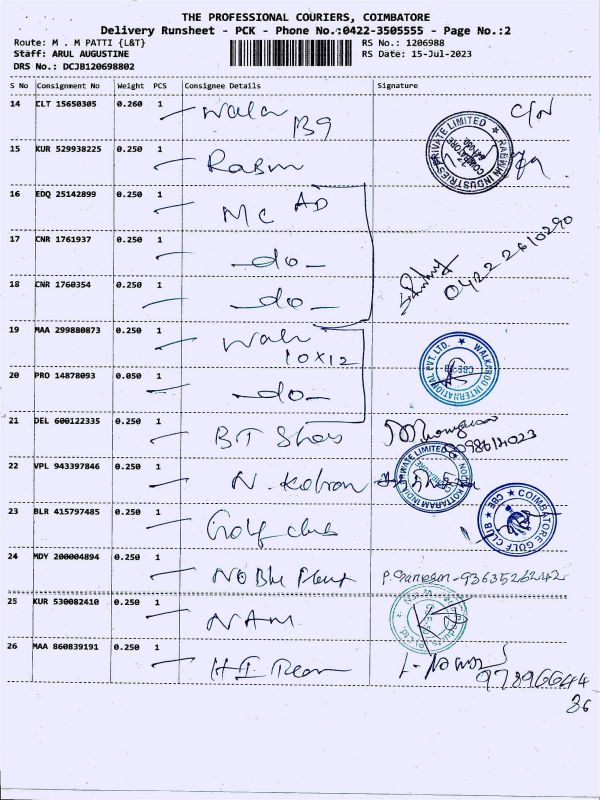 THE PROFESSIONAL COURIERS, COIMBATORE
Delivery Runsheet - PCK - Phone No.:0422-3505555 - Page No.:2
Route: M . M PATTI {L&T}
RS No.: 1206988
Staff: ARUL AUGUSTINE
RS Date: 15-Jul-2023
DRS No.: DCJB120698802
S No Consignment No Weight PCS Consignee Details Signature
14 CLT 15650305 0.260 1
B9
C/N
15 KUR 529938225 0.250 1
PRIVATE LIMITED ★ RABWIN INDUSTRIES
16 EDQ 25142899 0.250 1 MC AD
17 CNR 1761937 0.250 1 -do-
0422 2610290
18 CNR 1760354 0.250 1 -do-
19 MAA 299880873 0.250 1
10x12
WALKAROO INTERNATIONAL PVT. LTD. ★
20 PRO 14878093 0.050 1 -do-
21 DEL 600122335 0.250 1 BT
22 VPL 943397846 0.250 1 N.
23 BLR 415797485 0.250 1 Golf club
★ COIMBATORE GOLF CLUB ★ CBE
24 MDY 200004894 0.250 1 Noble
P. Ganesan - 9363526242
25 KUR 530082410 0.250 1 NAM
26 MAA 860839191 0.250 1 HI
9789664486